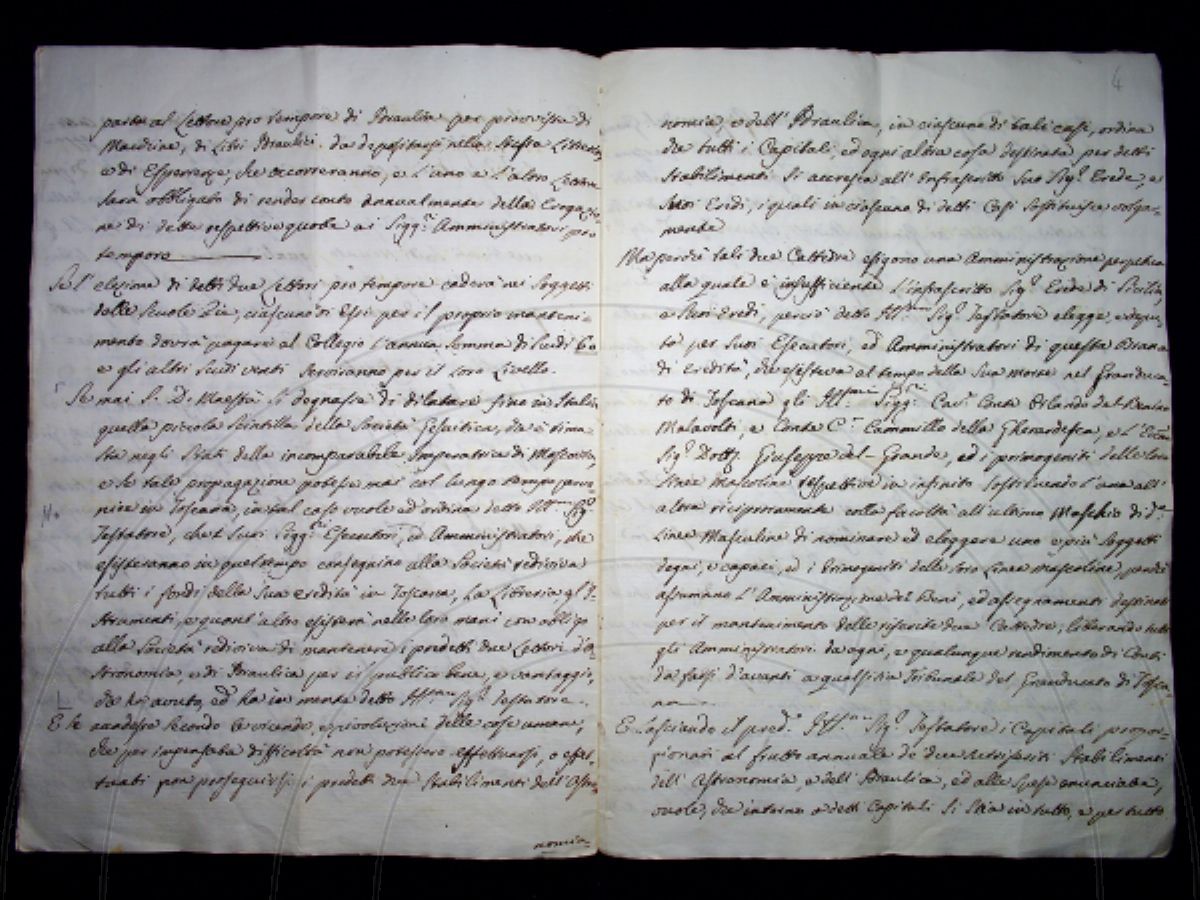 parte al Lettore pro tempore di Idraulica per provvista di
Macchine, di Libri Idraulici da depositarsi nella stessa Libreria,
e di Esperienze, che occorreranno, e l'uno e l'altro Lettore
sarà obbligato di render conto annualmente della Erogazio-
ne di detta respettiva quota ai Sigg.ri Amministratori pro
tempore
Se l'elezione di detti due Lettori pro tempore caderà nei Soggetti
delle Scuole Pie, ciascuno di Essi per il proprio manteni-
mento dovrà pagare al Collegio l'annua somma di Scudi 60
e gli altri Scudi venti serviranno per il loro Livello.
Se mai S. D. Maestà si degnasse di dilatare fino in Italia
quella piccola scintilla della Società Gesuitica, che è rima-
sta negli Stati della incomparabile Imperatrice di Moscovia,
e se tale propagazione potesse mai col lungo tempo perve-
nire in Toscana, in tal caso vuole ed ordina detto Ill.mo Sig.r
Testatore, che i Suoi Sigg.ri Esecutori, ed Amministratori, che
esisteranno in quel tempo conseguino alla Società rediviva
tutti i fondi della Sua eredità in Toscana, la Libreria gl'I-
strumenti, e quant'altro esisterà nelle loro mani con obbligo
alla Società rediviva di mantenere i predetti due Lettori d'A-
stronomia, e di Idraulica per il pubblico bene, e vantaggio,
che ha avuto, ed ha in mente detto Ill.mo Sig.r Testatore.
E se andasse secondo le vicende, e rivoluzioni delle cose umane,
che per impensata difficoltà non potessero effettuarsi, o effet-
tuati non proseguirsi i predetti due Stabilimenti dell'Astro-
nomia
4
nomia, e dell'Idraulica, in ciascuno di tali casi, ordina
che tutti i Capitali, ed ogni altra cosa destinata per detti
Stabilimenti si accresca all'Infrascritto Suo Sig.r Erede, e
Suoi Eredi, i quali in ciascuno di detti Casi sostituisce volgar-
mente
Ma perché tali due Cattedre esigono una Amministrazione perpetua
alla quale è insufficiente l'infrascritto Sig.r Erede di Sicilia,
e Suoi Eredi, perciò detto Ill.mo Sig.r Testatore elegge, e depu-
ta per Suoi Esecutori, ed Amministratori di questa
di Eredità, che esisteva al tempo della Sua morte nel Granduca-
to di Toscana gli Ill.mi Sigg.ri Cav.r Conte Orlando del Benino
Malavolti, e Conte C.r Cammillo della Gherardesca, e l'Ecc.mo
Sig.r Dott. Giuseppe del Grande, ed i primogeniti delle loro
linee Mascoline respettive in infinito sostituendo l'una all'
altra reciprocamente colla facoltà all'ultimo Maschio di d.a
Linea Masculina di nominare ed eleggere uno e più Soggetti
degni, e capaci, ed i Primogeniti delle loro Linee Mascoline, perché
assumano l'Amministrazione dei Beni, ed assegnamenti destinati
per il mantenimento delle riferite due Cattedre, liberando tutti
gli Amministratori da ogni, e qualunque rendimento di Conti
da farsi d'avanti a qualsisia Tribunale del Granducato di Tosca-
na
E lasciando il pred.o Ill.mo Sig.r Testatore i Capitali propor-
zionati al frutto annuale dei due retroscritti Stabilimenti
dell'Astronomia, e dell'Idraulica, ed alle spese enunciate,
vuole, che intorno a detti Capitali si stia in tutto, e per tutto